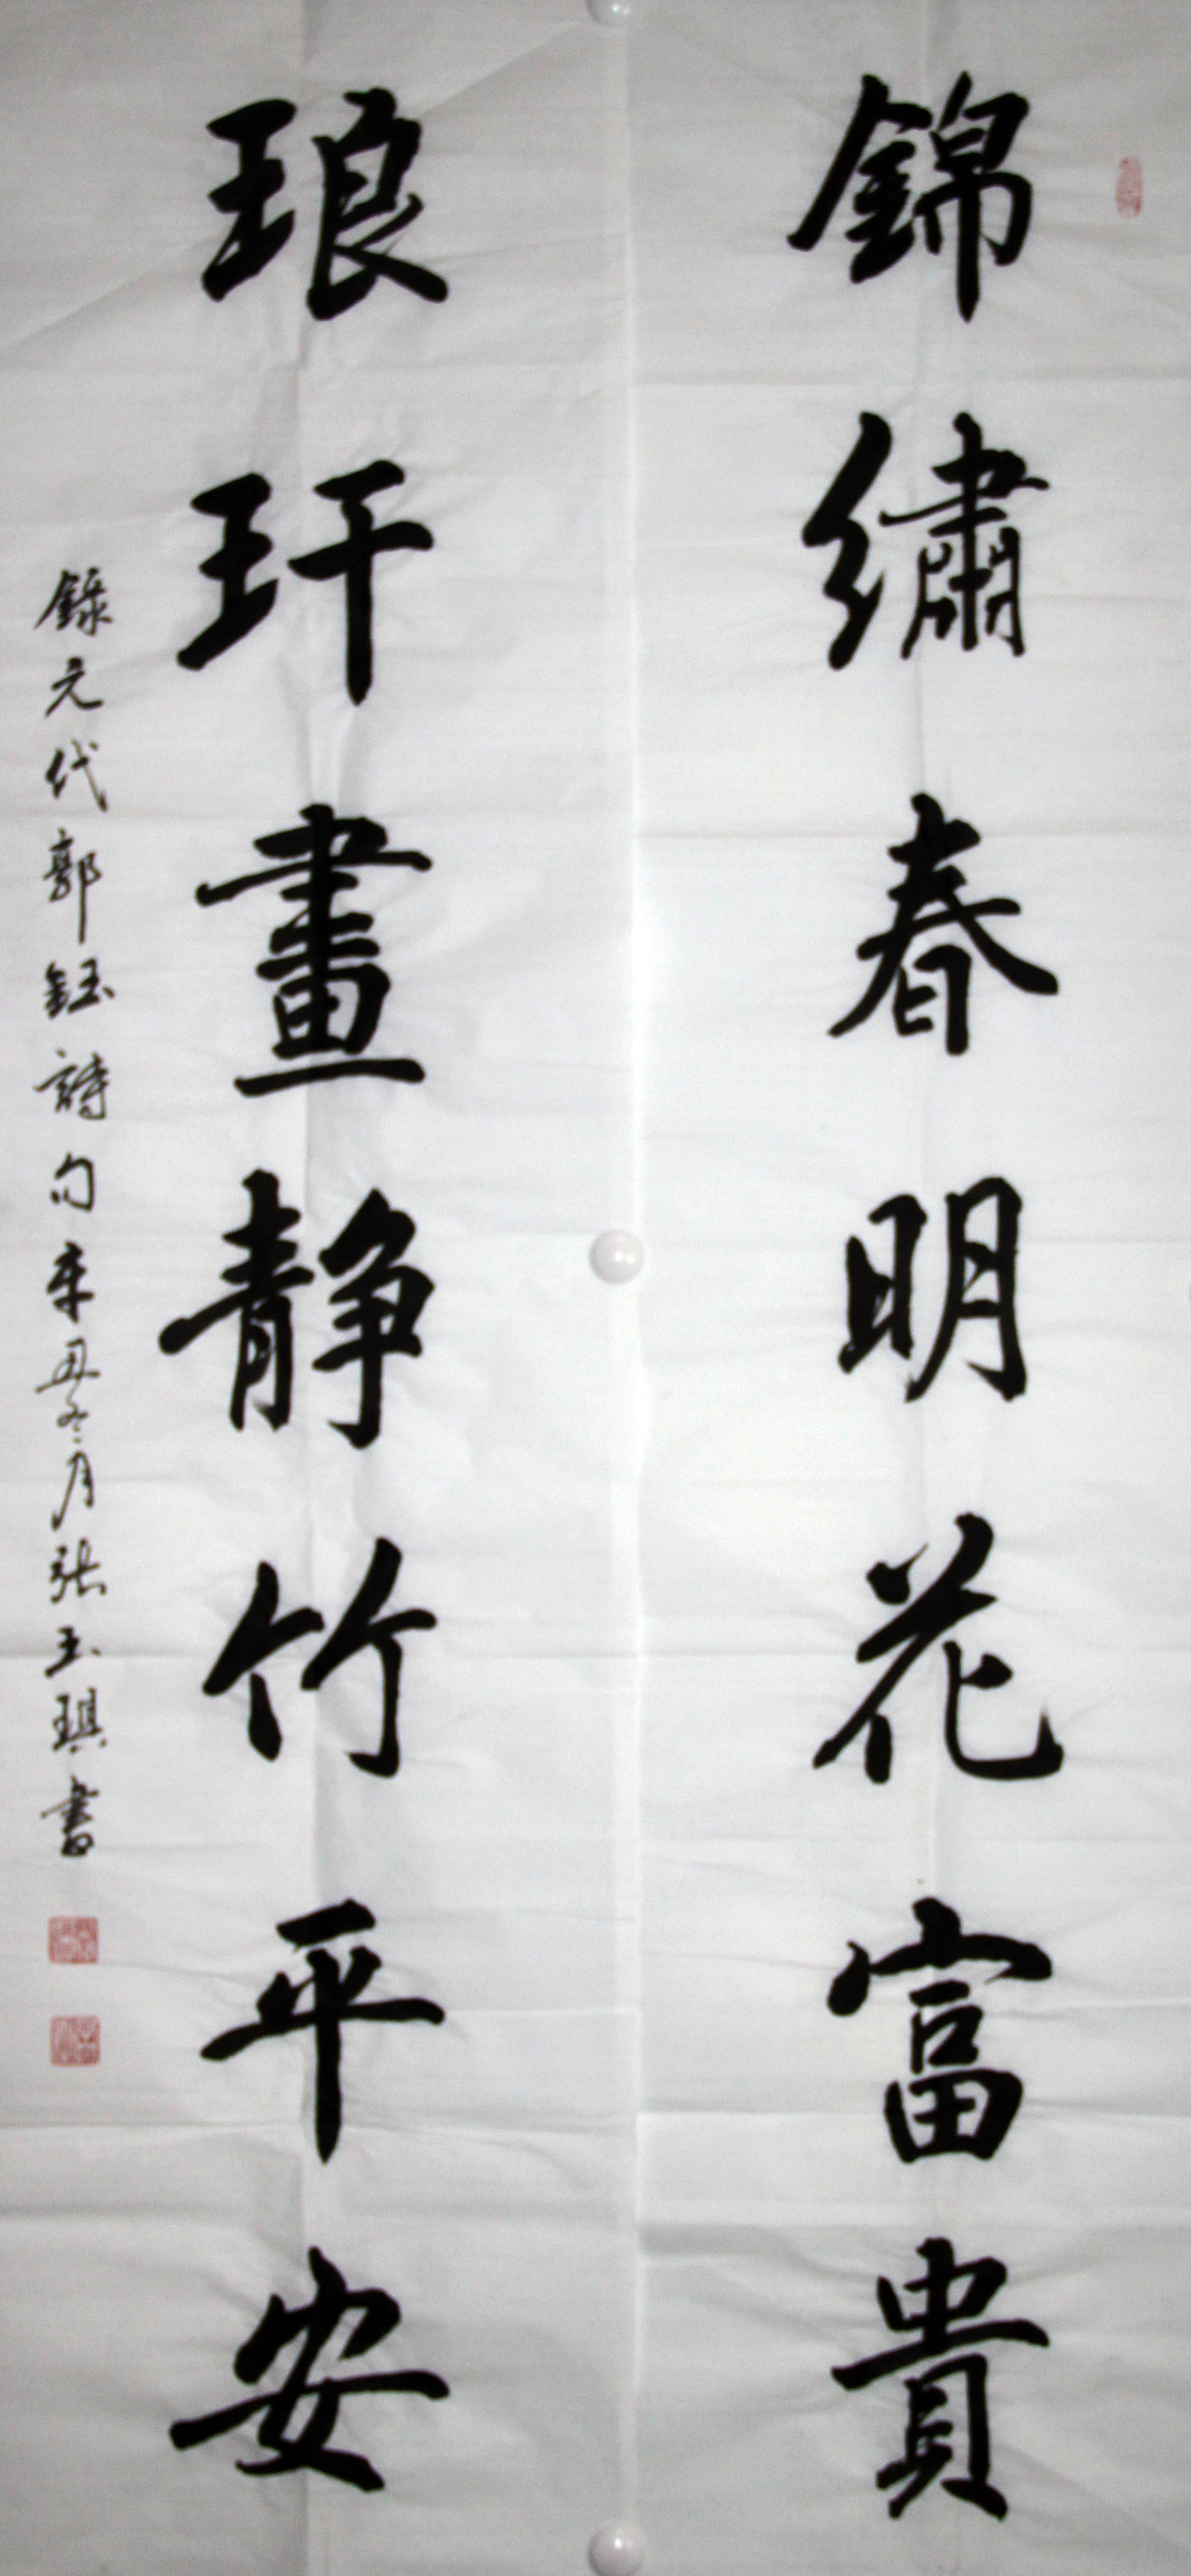 錦繡春明花富貴
琅玕畫静竹平安
錄元代郭鈺詩句辛丑冬月張玉琪書